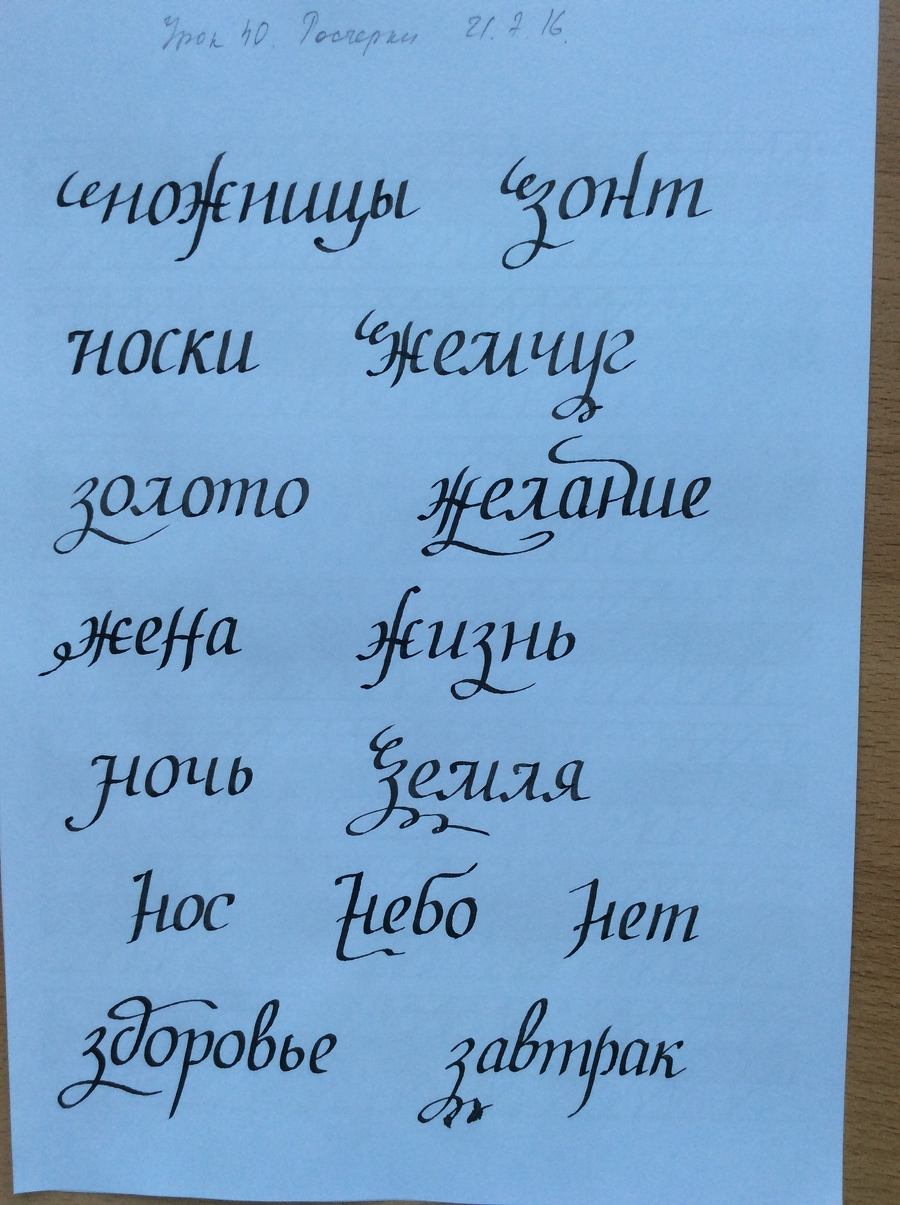 Урок 40. Росчерки 21.7.16.
ножницы зонт
носки жемчуг
золото желание
жена жизнь
ночь земля
нос небо нет
здоровье завтрак